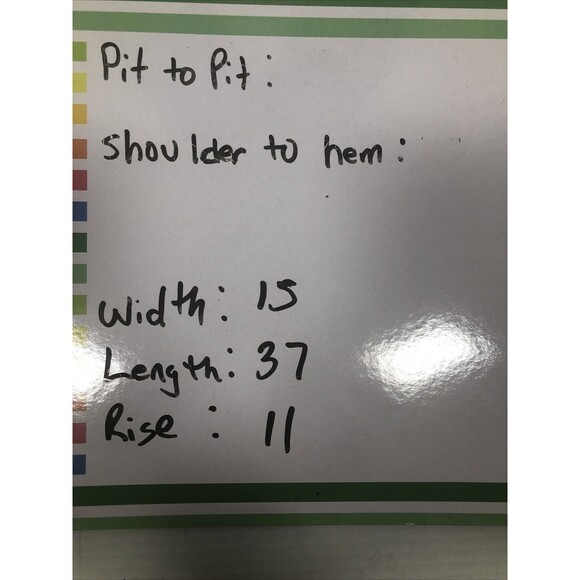 Pit to Pit:
shoulder to hem:
Width: 15
Length: 37
Rise: 11